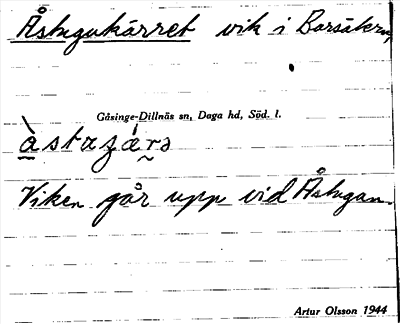 Åstugukärret vik i Barsäkern,
Gåsinge-Dillnäs sn, Daga hd, Söd. l.
Viken går upp vid Åstugan.
Artur Olsson 1944